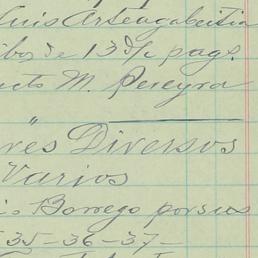 Luis Arteagabeitia
de 13 d/c pags.
M. Pereyra
Diversos
Varios
Borrego por sus
35-36-37-